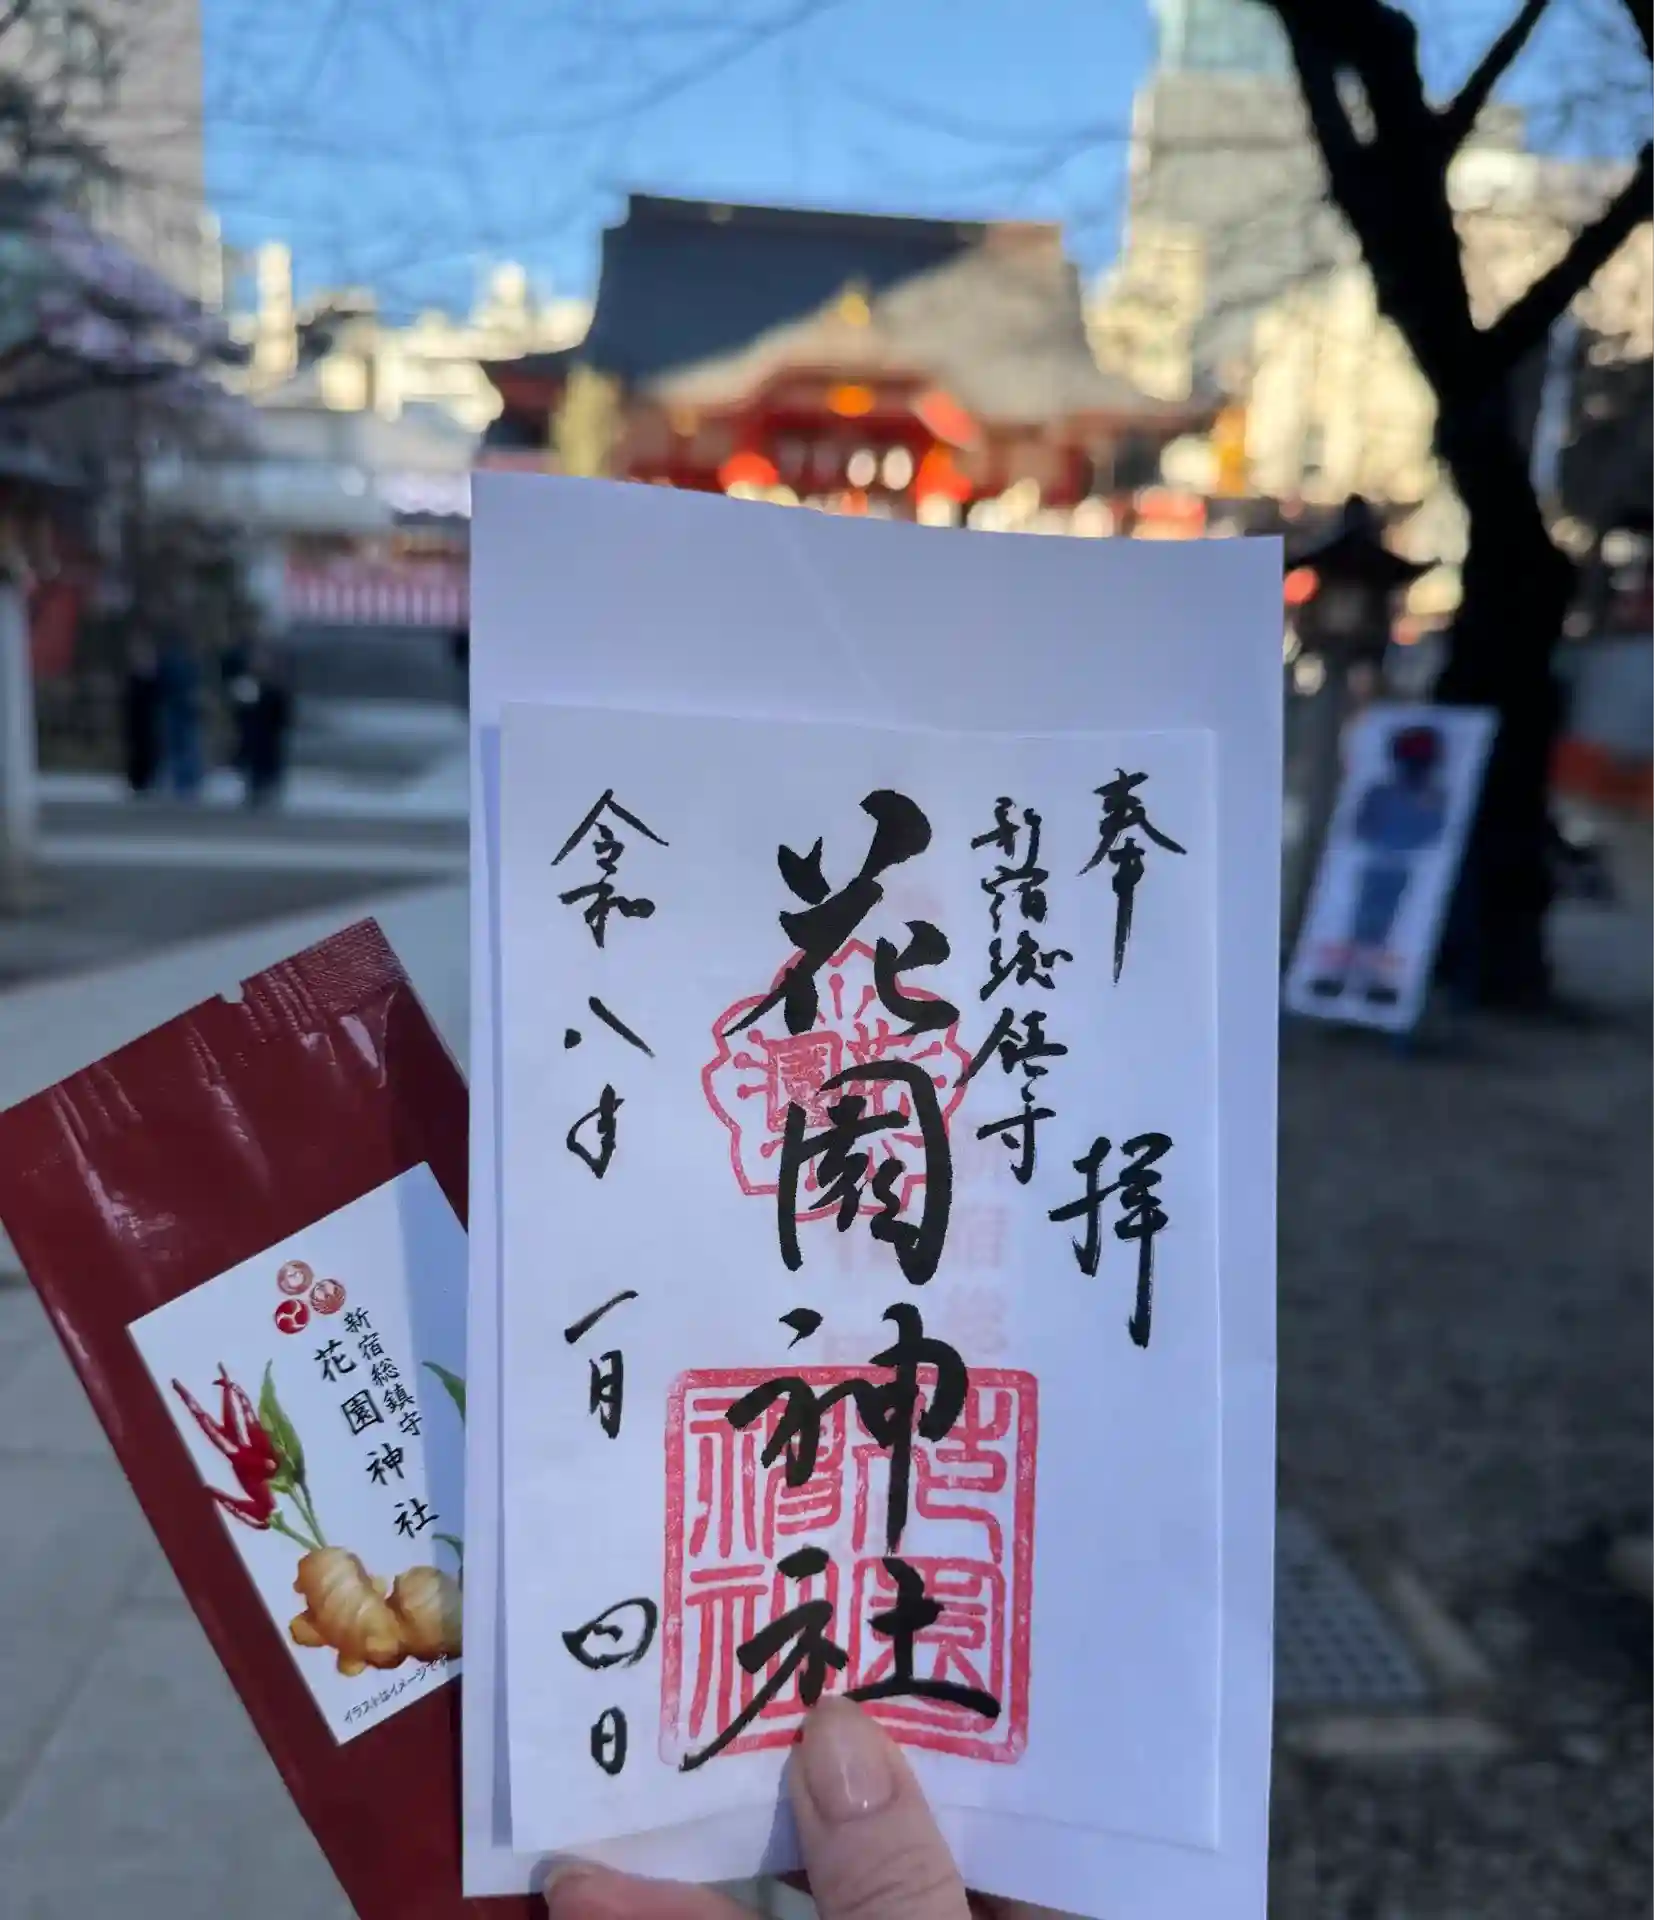 奉拝
新宿総鎮守
花園神社
令和八年一月四日
花園
花園神社
新宿総鎮守
花園神社
イラストはイメージです